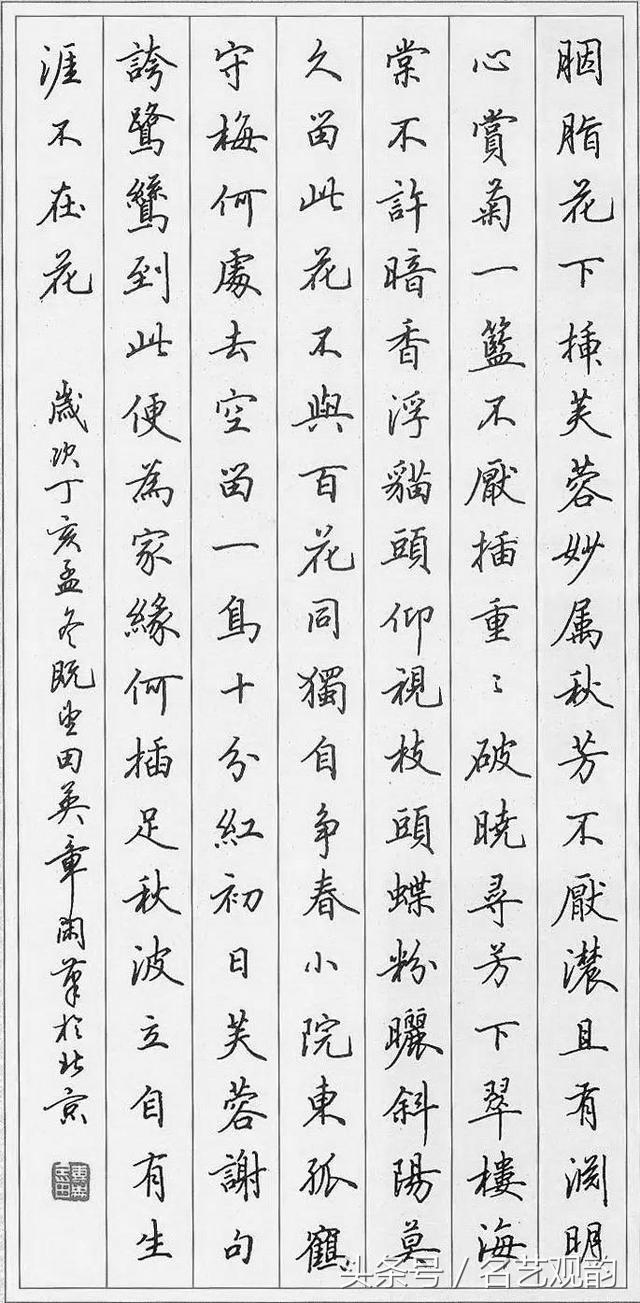 胭脂花下挿芙蓉妙属秋芳不厭濃且有渊明
心賞菊一籃不厭插重〻破曉尋芳下翠樓海
棠不許暗香浮貓頭仰視枝頭蝶粉曬斜陽莫
久留此花不與百花同獨自争春小院東孤鶴
守梅何處去空留一鳥十分紅初日芙蓉謝句
誇鷺鷥到此便為家緣何插足秋波立自有生
涯不在花
歲次丁亥孟冬既望田英章閑筆於北京
头条号 / 名艺观韵